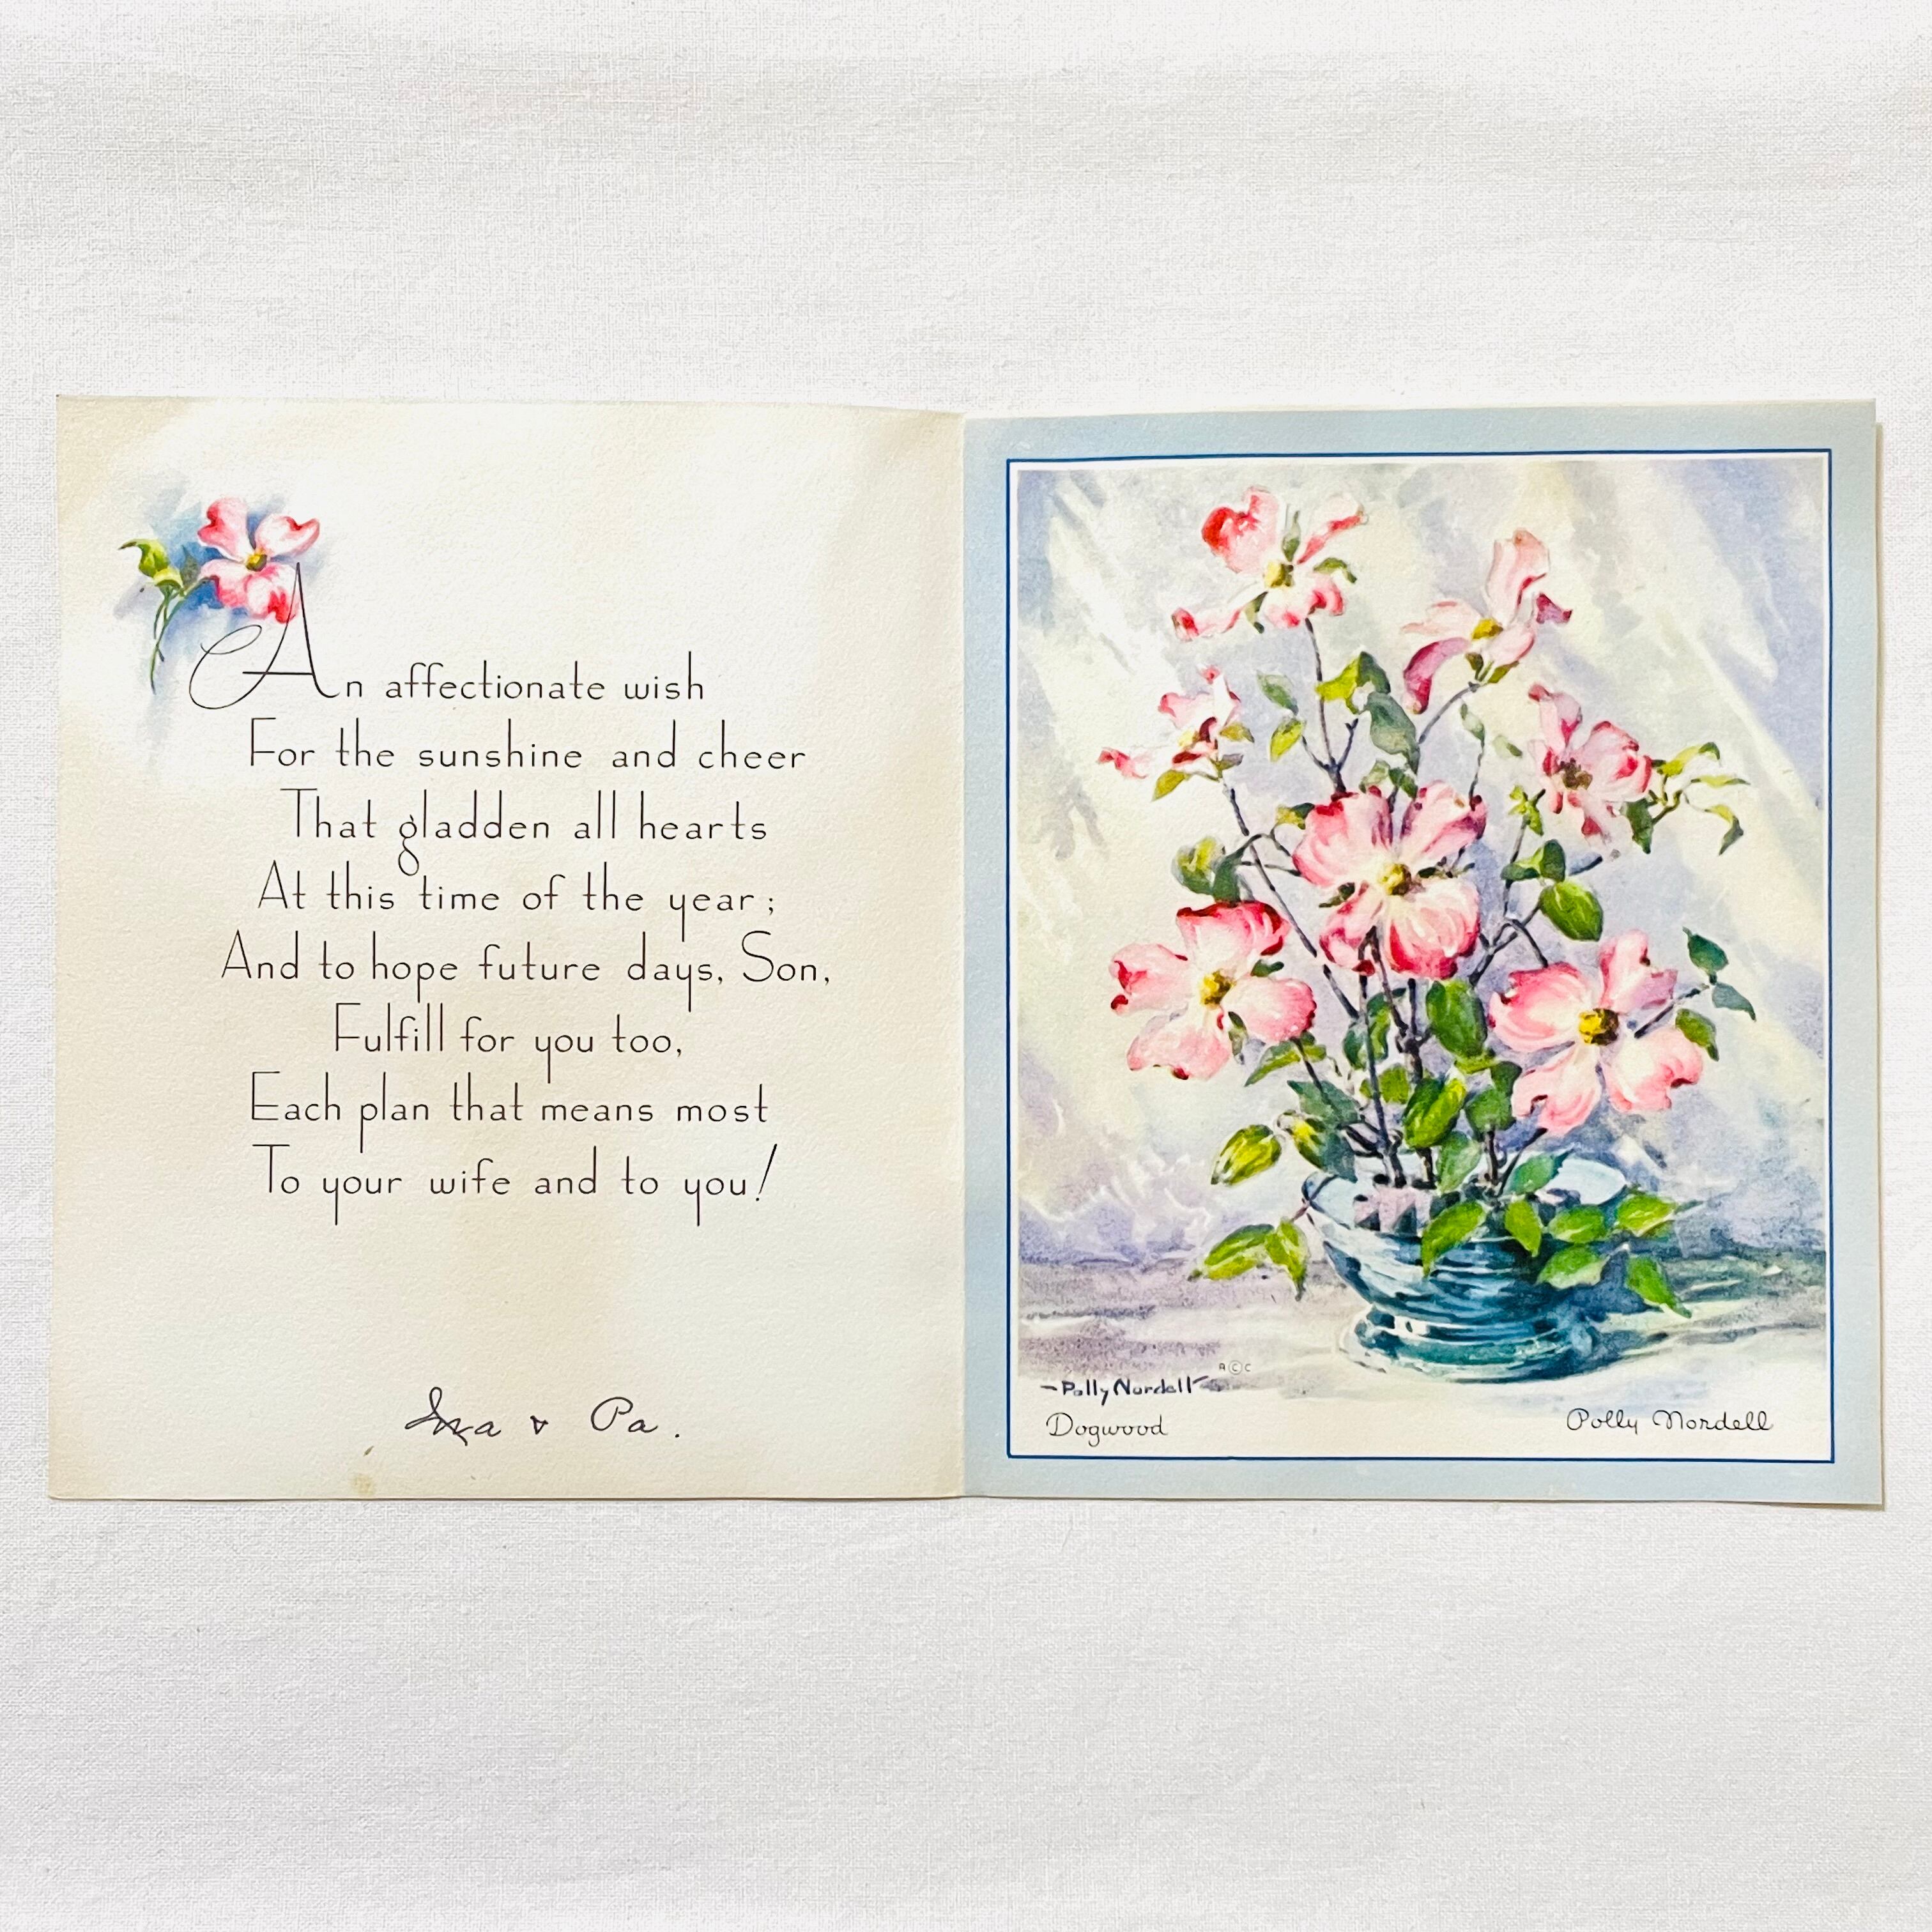 An affectionate wish
For the sunshine and cheer
That gladden all hearts
At this time of the year;
And to hope future days, Son,
Fulfill for you too,
Each plan that means most
To your wife and to you!
Ma & Pa.
A©C
Polly Nordell
Dogwood
Polly Nordell